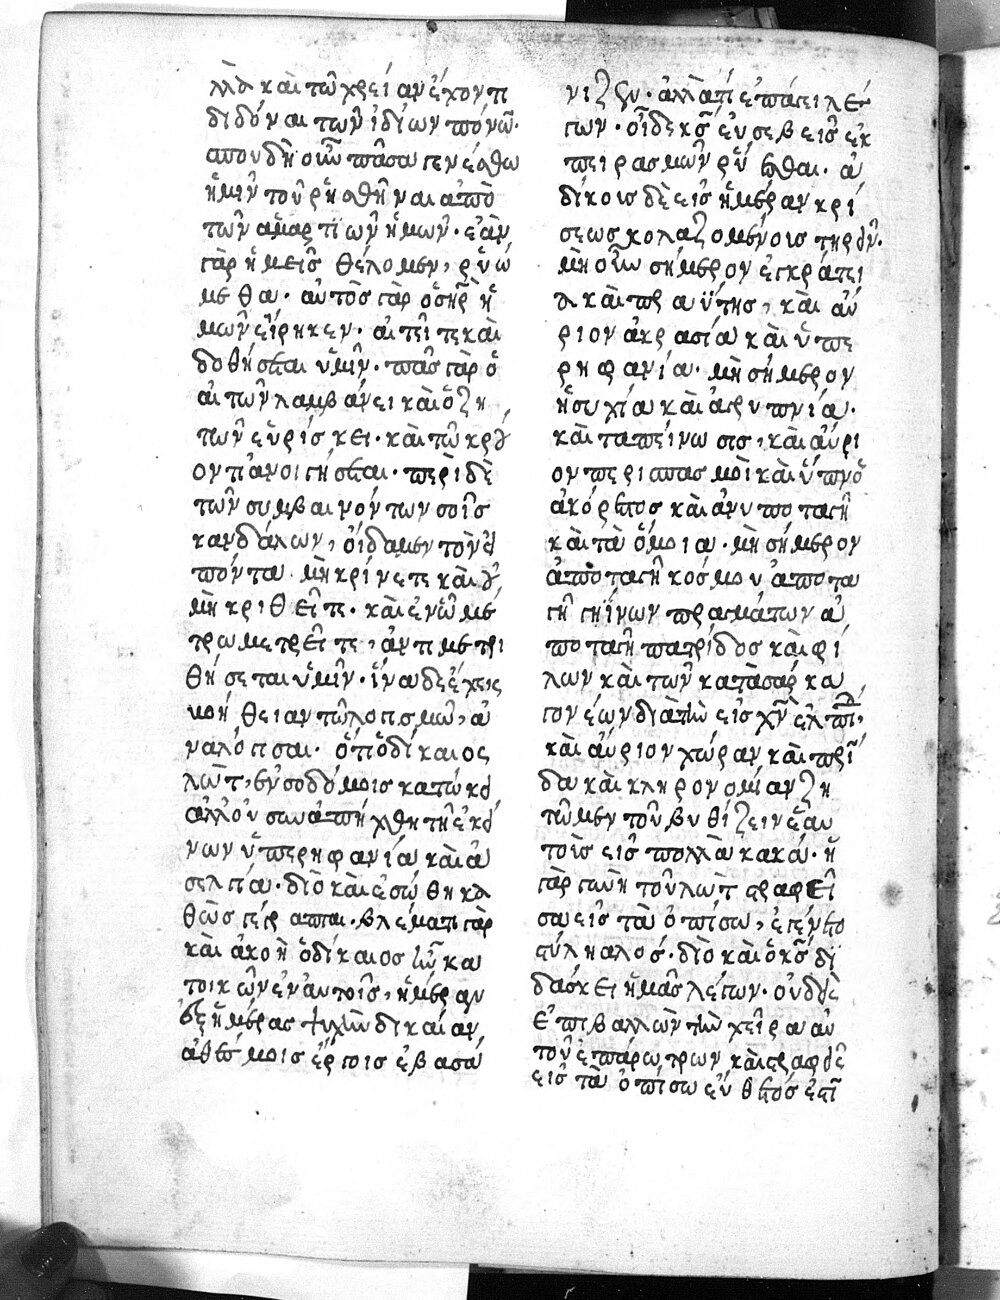 λλὰ καὶ τῷ χρείαν ἔχοντι
διδόναι τῶν ἰδίων πόνων·
σπουδὴ οὖν πᾶσα γενέσθω
ἡμῖν τοῦ ῥησθῆναι ἀπὸ
τῶν ἁμαρτιῶν ἡμῶν· ἐὰν
γὰρ ἡμεῖς θέλομεν, ῥυό
μεθα· αὐτὸς γὰρ ὁ σηρ ἡ
μῶν εἴρηκεν· αἰτεῖτε καὶ
δοθήσεται ὑμῖν· πᾶς γὰρ ὁ
αἰτῶν λαμβάνει καὶ ὁ ζη
τῶν εὑρίσκει· καὶ τῷ κρού
οντι ἀνοιγήσεται· περὶ δὲ
τῶν συμβαινόντων σοι σ
κανδάλων, οἴδαμεν τὸν εἰ
πόντα μὴ κρίνετε καὶ οὐ
μὴ κριθεῖτε· καὶ ἐν ᾧ μέ
τρω μετρεῖτε, ἀντιμετρι
θήσεται ὑμῖν· ἵνα δὲ ἔχεις
βοήθειαν τῶ λογισμῶ, ἀ
ναλόγισαι· ὅτι ὁ δίκαιος
λὼτ, ἐν σοδόμοις κατώκει
ἀλλ' οὐ συναπήχθη τῆ ἐκεί
νων ὑπερηφανία καὶ ἀ
σελγία· διὸ καὶ ἐσώθη κα
θὼς γέγραπται· βλέματι γὰρ
καὶ ἀκοῇ ὁ δίκαιος λὼτ κα
τοικῶν ἐν αὐτοῖς, ἡμέραν
ἐξ ἡμέρας ψυχὴν δικαίαν
ἀθέσμοις ἔργοις ἐβασά
νιζεν· ἀλλὰ τί ἐπάγει λέ
γων· οἶδε κς εὐσεβεῖς ἐκ
πειρασμῶν ῥύεσθαι· ἀ
δίκοις δὲ εἰς ἡμέραν κρί
σεως κολαζομένοις τηρεῖν·
μὴ οὖν σήμερον ἐγκράτει
α καὶ πραΰτης, καὶ αὔ
ριον ἀκρασία καὶ ὑπε
ρηφανία· μὴ σήμερον
ἡσυχία καὶ ἀγρυπνία·
καὶ ταπείνωσις, καὶ αὔρι
ον περισπασμοὶ καὶ ὕπνος
ἀκόρεστος καὶ ἀνυποταγὴ
καὶ τὰ ὅμοια· μὴ σήμερον
ἀποταγὴ κόσμου ἀποτα
γὴ γηΐνων πραγμάτων ἀ
ποταγὴ πατρίδος καὶ φί
λων καὶ τῶν κατὰ σάρκα
γονέων διὰ τὴν εἰς χν ἐλπί,
καὶ αὔριον χώραν καὶ πατρί
δα καὶ κληρονομίαν ζη
τῶμεν τοῦ βυθίζειν ἑαυ
τοῖς εἰς πολλὰ κακά· ἡ
γὰρ γυνὴ τοῦ λὼτ στραφεῖ
σα εἰς τὰ ὀπίσω, ἐγένετο
στύλη ἁλός· διὸ καὶ ὁ κς δι
δάσκει ἡμᾶς λέγων· οὐδεὶς
ἐπιβαλλὼν τὴν χεῖρα αὐ
τοῦ ἐπ' ἄρωτρων καὶ στραφεὶς
εἰς τὰ ὀπίσω εὔθετός ἐστι